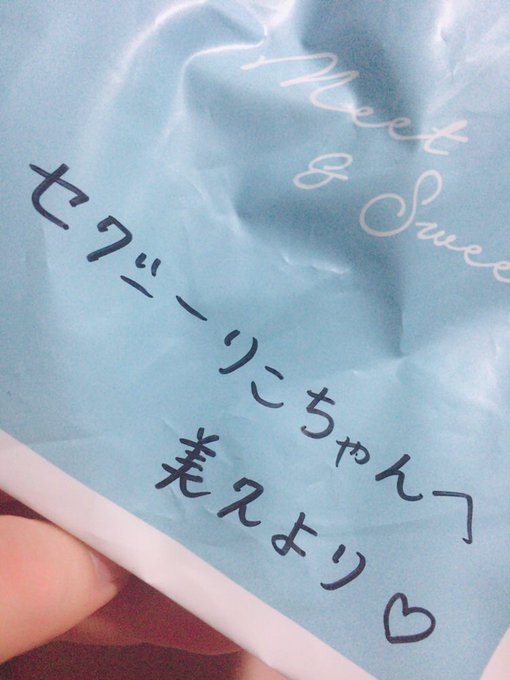 Meet
& Swee
セクシーりこちゃんへ
美久より♡